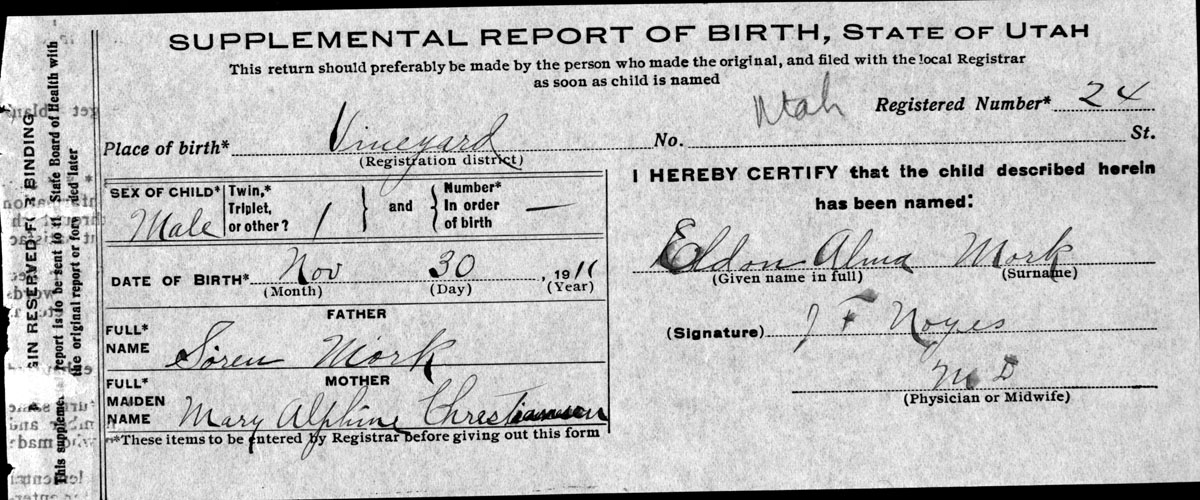 SUPPLEMENTAL REPORT OF BIRTH, STATE OF UTAH
This return should preferably be made by the person who made the original, and filed with the local Registrar
as soon as child is named
Utah Registered Number* 24
Place of birth* Vineyard No. St.
(Registration district)
SEX OF CHILD* Male
Twin,* Triplet, or other? 1 and Number* In order of birth —
DATE OF BIRTH* Nov 30, 1911
(Month) (Day) (Year)
FATHER
FULL* NAME Sören Mörk
MOTHER
FULL* MAIDEN NAME Mary Alphine
*These items to be entered by Registrar before giving out this form
I HEREBY CERTIFY that the child described herein
has been named:
Eldon Alma Mork
(Given name in full) (Surname)
(Signature) J F Noyes
M D
(Physician or Midwife)
GIN RESERVED FOR BINDING
report is to be sent to State Board of Health with
the original report or later